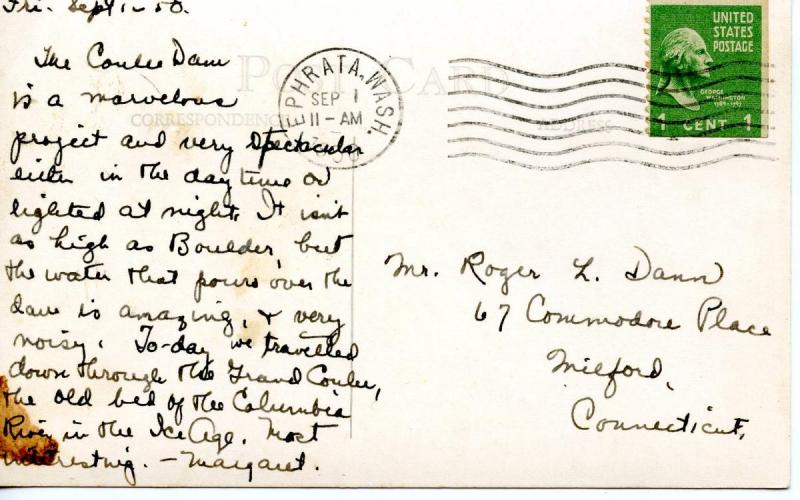 Fri. Sept 1-50.
The Coulee Dam
is a marvelous
project and very spectacular
either in the day time or
lighted at night. It isn't
as high as Boulder, but
the water that pours over the
dam is amazing, & very
noisy. To-day we travelled
down through the Grand Coulee,
the old bed of the Columbia
River in the Ice Age. Most
interesting. - Margaret.
POST CARD
CORRESPONDENCE
ADDRESS
EPHRATA, WASH.
SEP 1
11-AM
UNITED
STATES
POSTAGE
GEORGE
WASHINGTON
1789-1797
1 CENT 1
Mr. Roger L. Dann
67 Commodore Place
Milford,
Connecticut.